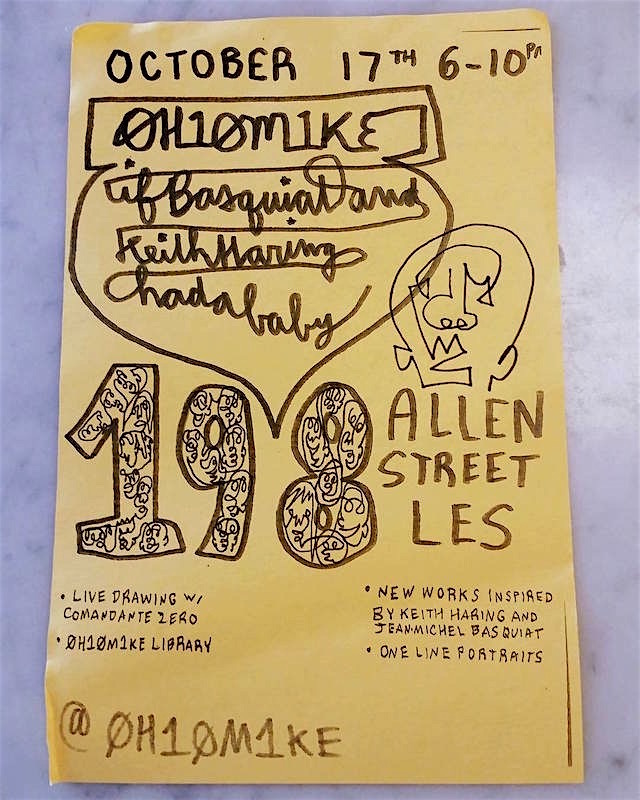 OCTOBER 17TH 6-10PM
ØH1ØM1KE
if Basquiat and
Keith Haring
had a baby
198
ALLEN
STREET
LES
• LIVE DRAWING W/
COMANDANTE ZERO
• ØH1ØM1KE LIBRARY
• NEW WORKS INSPIRED
BY KEITH HARING AND
JEAN-MICHEL BASQUIAT
• ONE LINE PORTRAITS
@ ØH1ØM1KE